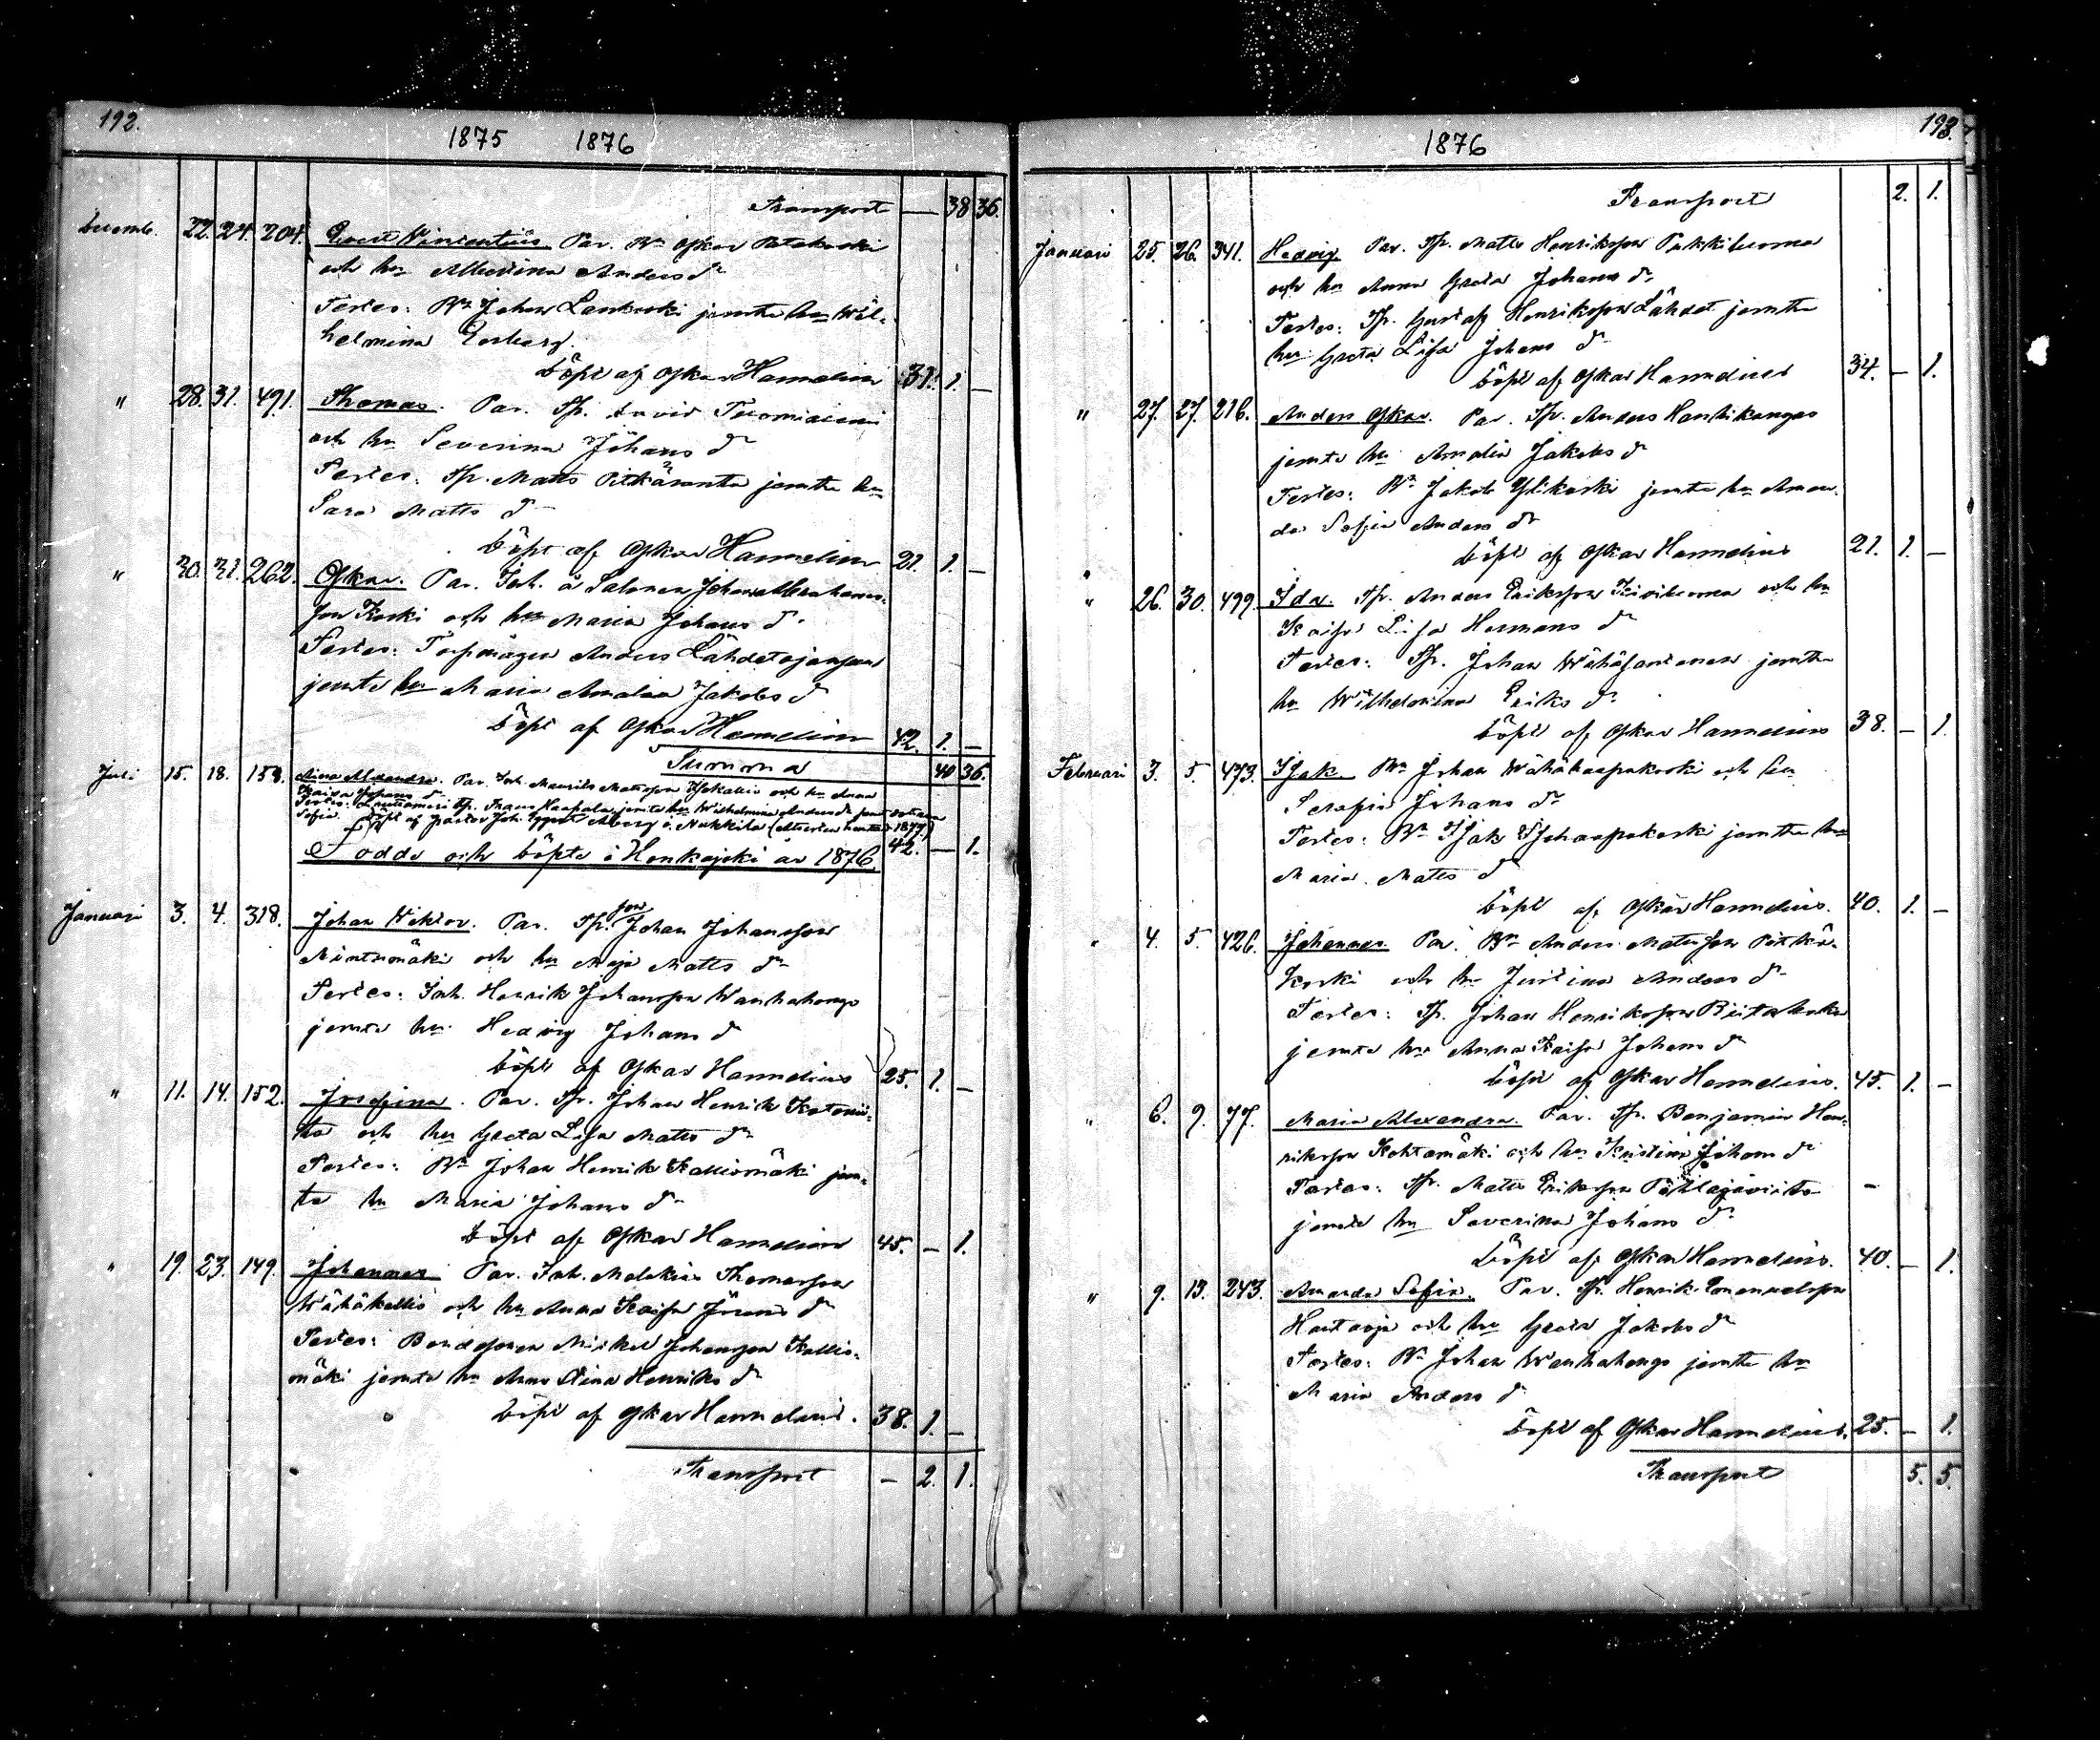 192.
1875 1876
Transport — 38 36.
Decemb. 22. 24. 204. Evert Vincentius. Par. Bn Oskar
och hu Albertina Anders dr
Testes: Bn Johan Lankoski jemte hu Wil-
helmina
Döpt af Oskar Hannelius 31. 1. —
" 28. 31. 491. Thomas. Par. Tp. David Tuominiemi
och hu Severina Johans dr
Testes: Tp. Matts Pitkäranta jemte hu
Sara Matts dr
Döpt af Oskar Hannelius 21. 1. —
" 30. 31. 262. Oskar. Par. Inh. å Salonen Johan Abrahams-
son Koski och hu Maria Johans dr
Testes: Torpmågen Anders Lähdetojansuu
jemte hu Maria Amalia Jakobs dr
Döpt af Oskar Hannelius 42. 1. —
Summa 40 36.
Juli 15. 18. 153. Mina Alexandra. Par. Inh. Maurits Mattsson Isokallio och hu Anna
Kaisa Johans dr
Testes: Tp. Frans Haapala jemte hu Wilhelmina Anders dr samt
Sofia. Döpt af pastor Joh. Åberg i Nakkila 1877) 42. — 1.
Födde och döpte i Honkajoki år 1876.
Januari 3. 4. 318. Johan Wiktor. Par. Tp. son Johan Johansson
Mäntymäki och hu Maja Matts dr
Testes: Inh. Henrik Johansson Wanhahongo
jemte hu Hedvig Johans dr
Döpt af Oskar Hannelius 25. 1. —
" 11. 14. 152. Josefina. Par. Tp. Johan Henrik Katavis-
to och hu Greta Lisa Matts dr
Testes: Bn Johan Henrik Kalliomäki jem-
te hu Maria Johans dr
Döpt af Oskar Hannelius 45. — 1.
" 19. 23. 149. Johannes. Par. Inh. Malakias Thomasson
Wähäkallio och hu Anna Kaisa Jörans dr
Testes: Bondesonen Mickel Johansson Kallio-
mäki jemte hu Anna Stina Henriks dr
Döpt af Oskar Hannelius. 38. 1. —
Transport — 2. 1.
193.
1876
Transport 2. 1.
Januari 25. 26. 341. Hedvig. Par. Tp. Matts Henriksson Pukkiluoma
och hu Anna Greta Johans dr
Testes: Tp. Gustaf Henriksson Lähdet jemte
hu Greta Lisa Johans dr
Döpt af Oskar Hannelius 34. — 1.
" 27. 27. 216. Anders Oskar. Par. Tp. Anders Hautikangas
jemte hu Amalia Jakobs dr
Testes: Bn Jakob Ylikoski jemte hu Aman-
da Sofia Anders dr
Döpt af Oskar Hannelius 21. 1. —
" 26. 30. 499. Ida. Tp. Anders Eriksson Kiviluoma och hu
Kaisa Lisa Hermans dr
Testes: Tp. Johan Wähäsantanen jemte
hu Wilhelmina Eriks dr
Döpt af Oskar Hannelius 38. — 1.
Februari 3. 5. 473. Isak. Bn Johan Wähähaapakoski och hu
Serafia Johans dr
Testes: Bn Isak Isohaapakoski jemte hu
Maria Matts dr
Döpt af Oskar Hannelius. 40. 1. —
" 4. 5. 426. Johannes. Par. Bn Anders Mattsson Pitkä-
koski och hu Justina Anders dr
Testes: Tp. Johan Henriksson Riitahuhta
jemte hu Anna Kaisa Johans dr
Döpt af Oskar Hannelius. 45. 1. —
" 6. 9. 77. Maria Alexandra. Par. Tp. Benjamin Hen-
riksson Kohtamäki och hu Kristina Johans dr
Testes: Tp. Matts Eriksson Pihlajaviita
jemte hu Severina Johans dr
Döpt af Oskar Hannelius. 40. — 1.
" 9. 13. 243. Amanda Sofia. Par. Tp. Henrik Emanuelsson
Hautaoja och hu Greta Jakobs dr
Testes: Bn Johan Wanhahongo jemte hu
Maria Anders dr
Döpt af Oskar Hannelius. 25. — 1.
Transport 5. 5.